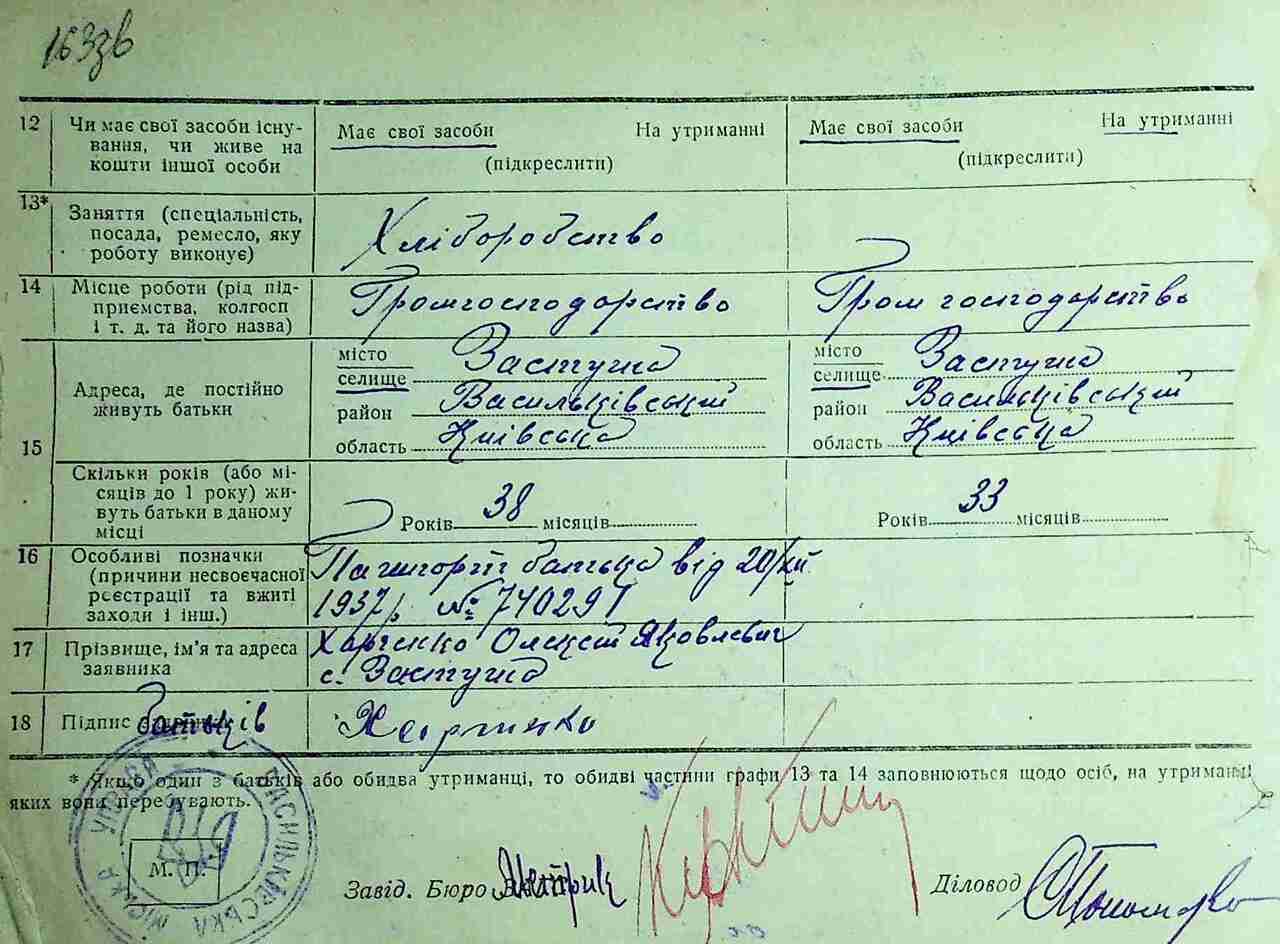 163зв
12 Чи має свої засоби існу-
вання, чи живе на
кошти іншої особи
Має свої засоби На утриманні
(підкреслити)
Має свої засоби На утриманні
(підкреслити)
13* Заняття (спеціальність,
посада, ремесло, яку
роботу виконує)
Хліборобство
14 Місце роботи (рід під-
приємства, колгосп
і т. д. та його назва)
Громгосподарство
Гром господарство
15 Адреса, де постійно
живуть батьки
місто
селище Застугна
район Васильківський
область Київська
місто
селище Застугна
район Васильківський
область Київська
Скільки років (або мі-
сяців до 1 року) жи-
вуть батьки в даному
місці
Років 38 місяців
Років 33 місяців
16 Особливі позначки
(причини несвоєчасної
реєстрації та вжиті
заходи і інш.)
Пашпорт батька від 20/XII
1937р. № 740291
17 Прізвище, ім'я та адреса
заявника
Харченко Олексій Яковлевич
с. Застугна
18 Підпис батьків
Харченко
* Якщо один з батьків або обидва утриманці, то обидві частини графи 13 та 14 заповнюються щодо осіб, на утриманні
яких вони перебувають.
ВАСИЛЬКІВСЬКА МІСЬКА УПРАВА
М. П.
Завід. Бюро
Діловод